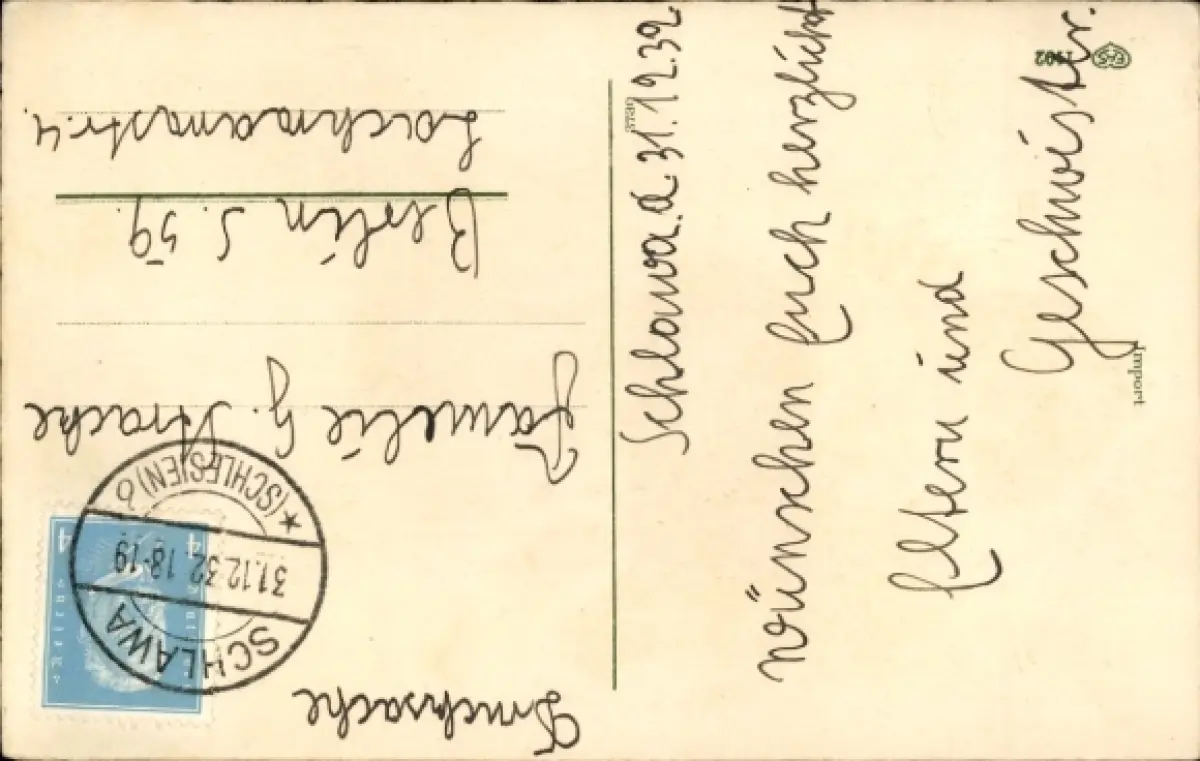 Drucksache
SCHLAWA
31.12.32 18-19
★ (SCHLESIEN) b
4 4
Familie G. Strache
Berlin S. 59.
Lachmannstr. 4.
Schlawa. d. 31.12.32
wünschen Euch herzlichst
Eltern und
Geschwister.
Import
1902